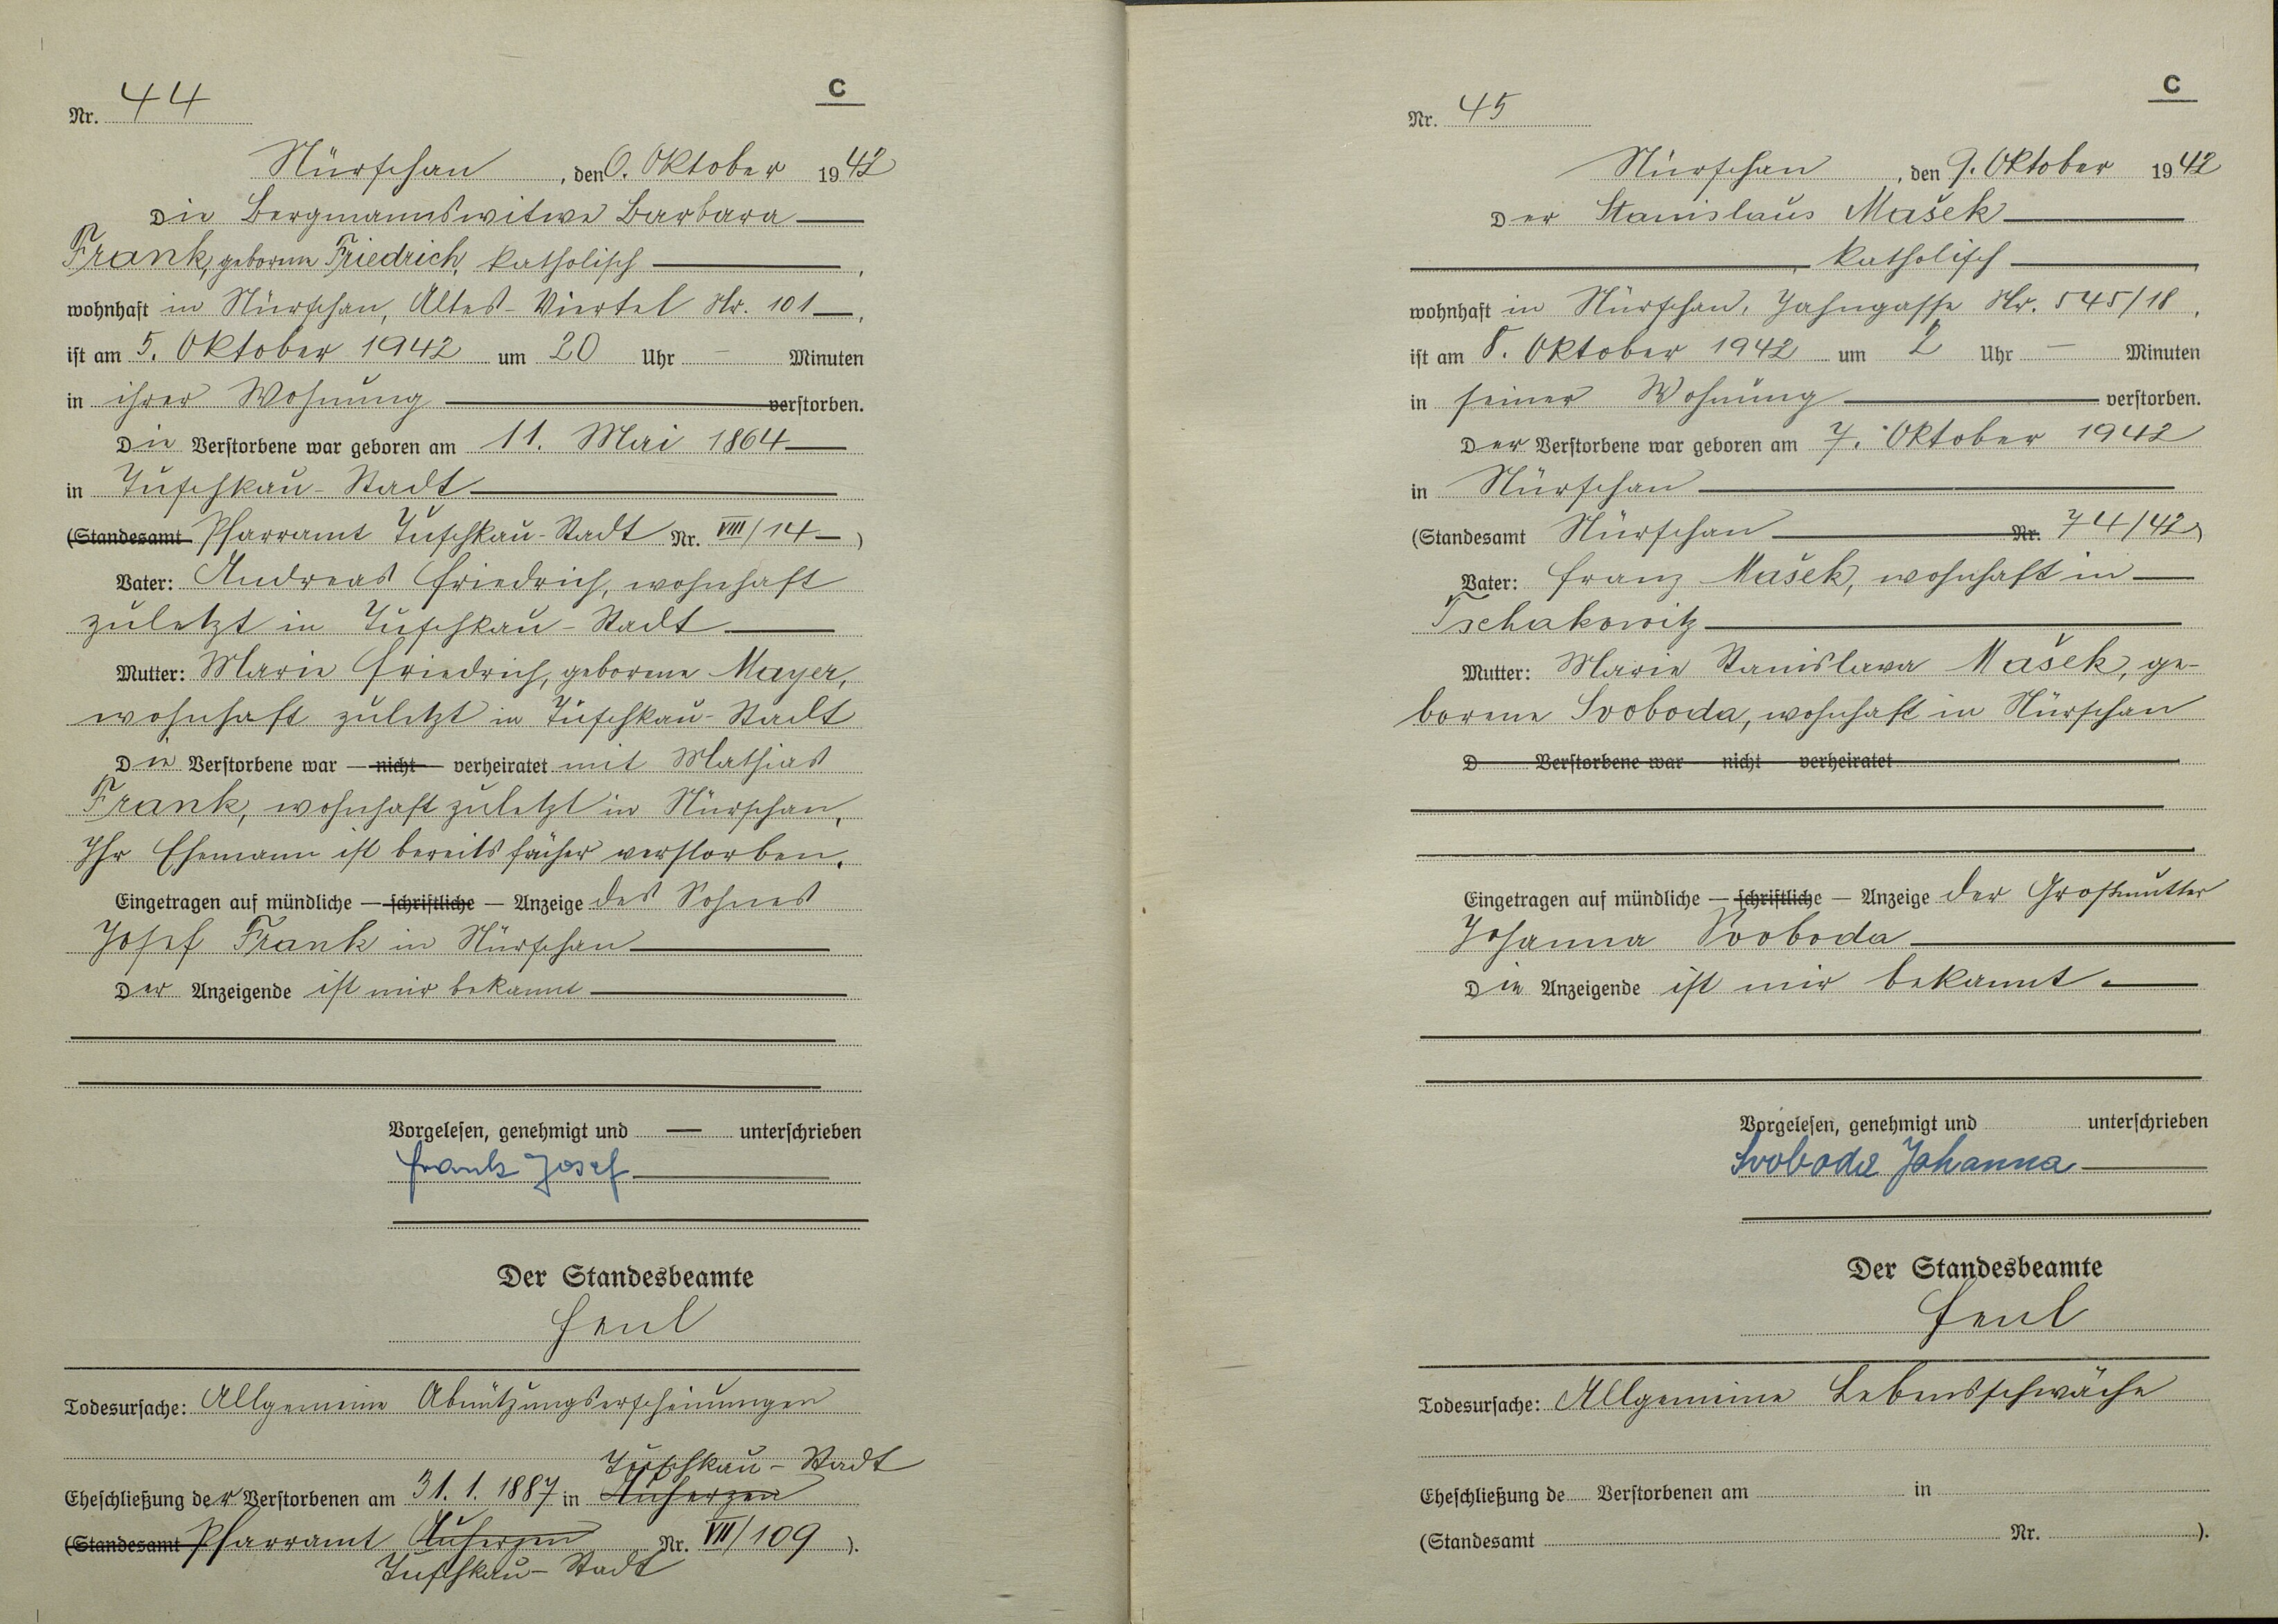 C
Nr. 44
Nürschan, den 6. Oktober 1942
Die Bergmannswitwe Barbara
Frank, geborene Friedrich, katholisch,
wohnhaft in Nürschan, Altes-Viertel Nr. 101,
ist am 5. Oktober 1942 um 20 Uhr – Minuten
in ihrer Wohnung verstorben.
Die Verstorbene war geboren am 11. Mai 1864
in Tuschkau-Stadt
(Standesamt Pfarramt Tuschkau-Stadt Nr. VIII/14)
Vater: Andreas Friedrich, wohnhaft
zuletzt in Tuschkau-Stadt
Mutter: Marie Friedrich, geborene Mayer,
wohnhaft zuletzt in Tuschkau-Stadt
Die Verstorbene war — nicht — verheiratet mit Mathias
Frank, wohnhaft zuletzt in Nürschan,
Ihr Ehemann ist bereits früher verstorben.
Eingetragen auf mündliche — schriftliche — Anzeige des Sohnes
Josef Frank in Nürschan
Der Anzeigende ist mir bekannt
Vorgelesen, genehmigt und — unterschrieben
Frank Josef
Der Standesbeamte
Todesursache: Allgemeine Abnützungserscheinungen
Tuschkau-Stadt
Eheschließung der Verstorbenen am 31. 1. 1887 in Auherzen
(Standesamt Pfarramt Auherzen Nr. VII/109).
Tuschkau-Stadt
C
Nr. 45
Nürschan, den 9. Oktober 1942
Der Stanislaus Mašek
, katholisch,
wohnhaft in Nürschan, Jahngasse Nr. 545/18,
ist am 8. Oktober 1942 um 2 Uhr – Minuten
in seiner Wohnung verstorben.
Der Verstorbene war geboren am 7. Oktober 1942
in Nürschan
(Standesamt Nürschan Nr. 74/42)
Vater: Franz Mašek, wohnhaft in
Tschakowitz
Mutter: Marie Stanislava Mašek, ge-
borene Svoboda, wohnhaft in Nürschan
D Verstorbene war — nicht — verheiratet
Eingetragen auf mündliche — schriftliche — Anzeige der Großmutter
Johanna Svoboda
Die Anzeigende ist mir bekannt.
Vorgelesen, genehmigt und unterschrieben
Svoboda Johanna
Der Standesbeamte
Todesursache: Allgemeine Lebensschwäche
Eheschließung de Verstorbenen am in
(Standesamt Nr. ).